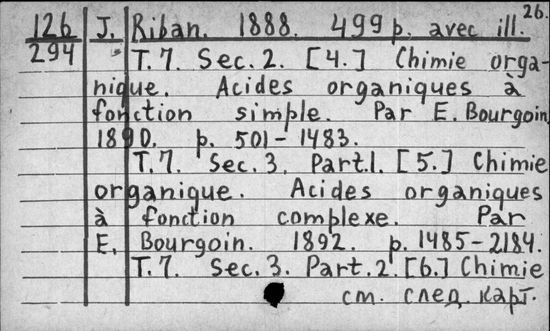 26.
126 J. Riban. 1888. 499 p. avec ill.
294 T.7. Sec.2. [4.] Chimie orga-
nique. Acides organiques à
fonction simple. Par E. Bourgoin
1890. p. 501-1483.
T.7. Sec.3. Part.1. [5.] Chimie
organique. Acides organiques
à fonction complexe. Par
E. Bourgoin. 1892. p. 1485-2184.
T.7. Sec.3. Part.2. [6.] Chimie
см. след. карт.